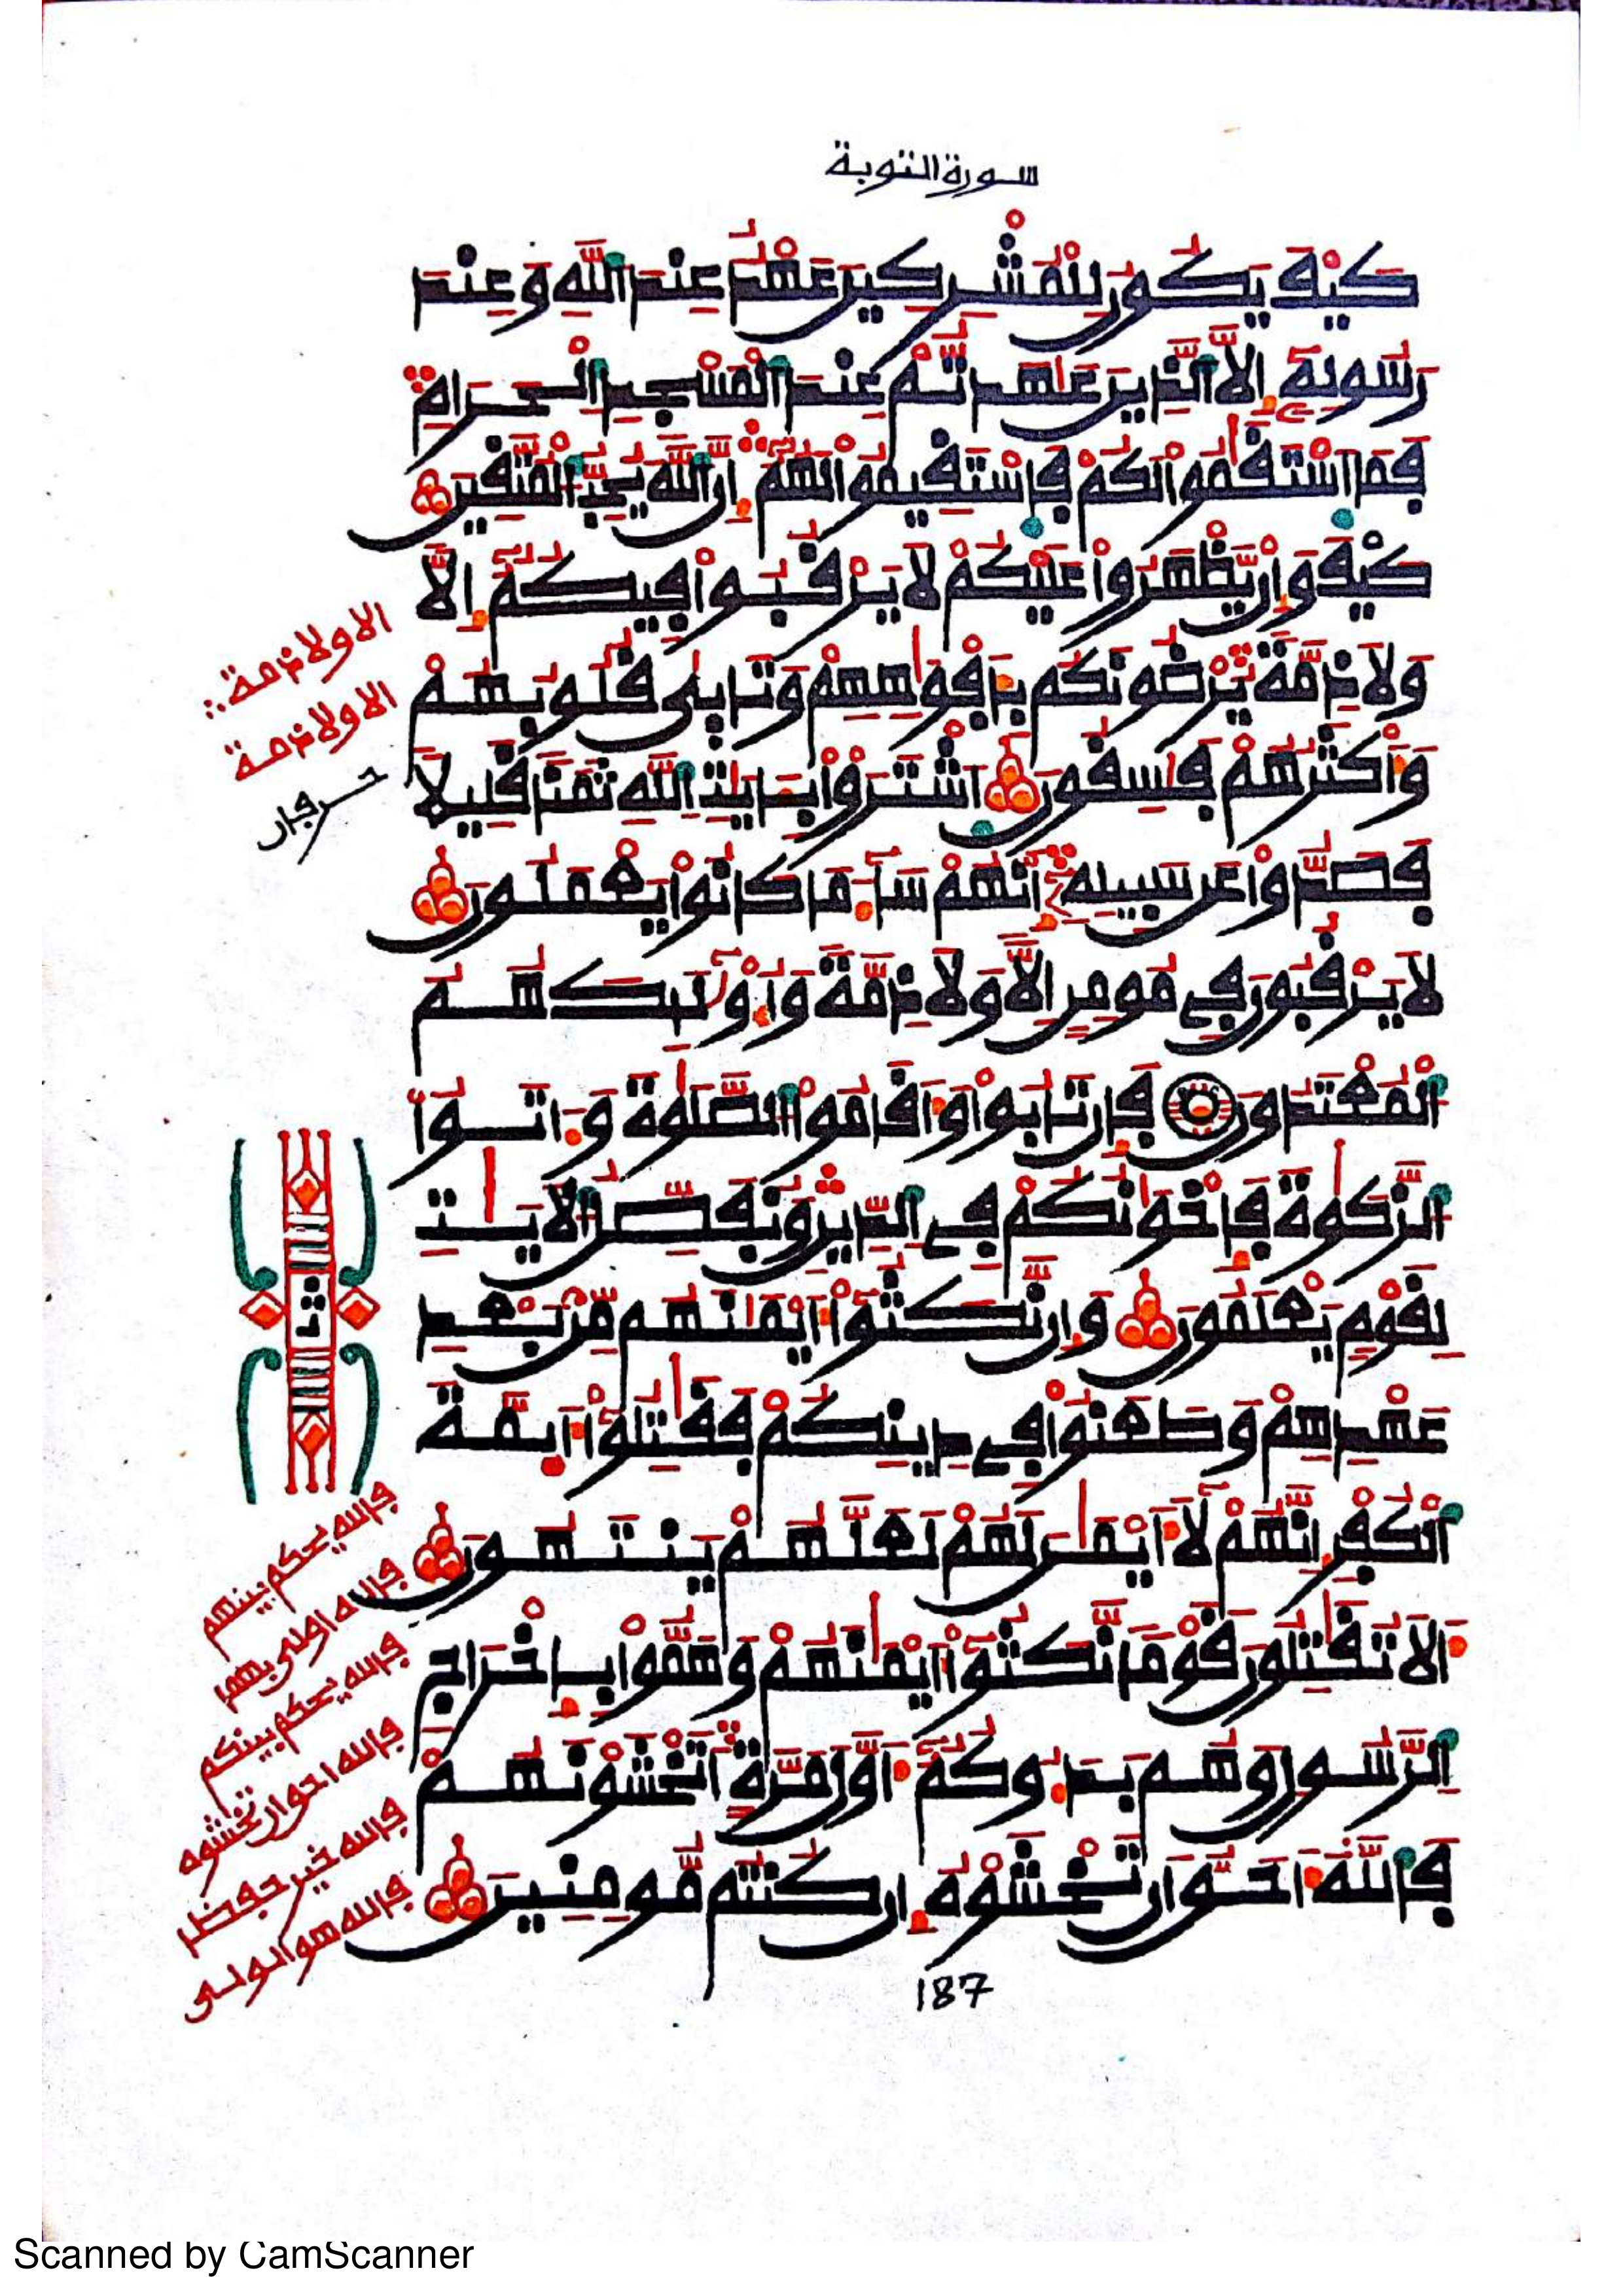 سورة التوبة
كَيْفَ يَكُونُ لِلْمُشْرِكِينَ عَهْدٌ عِندَ اللَّهِ وَعِندَ
رَسُولِهِ إِلَّا الَّذِينَ عَاهَدتُّمْ عِندَ الْمَسْجِدِ الْحَرَامِ
فَمَا اسْتَقَامُوا لَكُمْ فَاسْتَقِيمُوا لَهُمْ إِنَّ اللَّهَ يُحِبُّ الْمُتَّقِينَ
كَيْفَ وَإِن يَظْهَرُوا عَلَيْكُمْ لَا يَرْقُبُوا فِيكُمْ إِلًّا
وَلَا ذِمَّةً يُرْضُونَكُم بِأَفْوَاهِهِمْ وَتَأْبَىٰ قُلُوبُهُمْ
وَأَكْثَرُهُمْ فَاسِقُونَ اشْتَرَوْا بِآيَاتِ اللَّهِ ثَمَنًا قَلِيلًا
فَصَدُّوا عَن سَبِيلِهِ إِنَّهُمْ سَاءَ مَا كَانُوا يَعْمَلُونَ
لَا يَرْقُبُونَ فِي مُومِنٍ إِلًّا وَلَا ذِمَّةً وَأُوْلَٰئِكَ هُمُ
الْمُعْتَدُونَ فَإِن تَابُوا وَأَقَامُوا الصَّلَوٰةَ وَءَاتَوُا
الزَّكَوٰةَ فَإِخْوَانُكُمْ فِي الدِّينِ وَنُفَصِّلُ الْآيَاتِ
لِقَوْمٍ يَعْلَمُونَ وَإِن نَّكَثُوا أَيْمَانَهُم مِّنۢ بَعْدِ
عَهْدِهِمْ وَطَعَنُوا فِي دِينِكُمْ فَقَاتِلُوا أَئِمَّةَ
الْكُفْرِ إِنَّهُمْ لَا أَيْمَانَ لَهُمْ لَعَلَّهُمْ يَنتَهُونَ
أَلَا تُقَاتِلُونَ قَوْمًا نَّكَثُوا أَيْمَانَهُمْ وَهَمُّوا بِإِخْرَاجِ
الرَّسُولِ وَهُم بَدَءُوكُمْ أَوَّلَ مَرَّةٍ أَتَخْشَوْنَهُمْ
فَاللَّهُ أَحَقُّ أَن تَخْشَوْهُ إِن كُنتُم مُّومِنِينَ
187
الا ولا ذمة
الا ولا ذمة
حرفان
فالله يحكم بينهم
فالله اولى بهما
فالله يحكم بينكم
فالله احق ان تخشوه
فالله خير حفظا
فالله هو الولى
Scanned by CamScanner